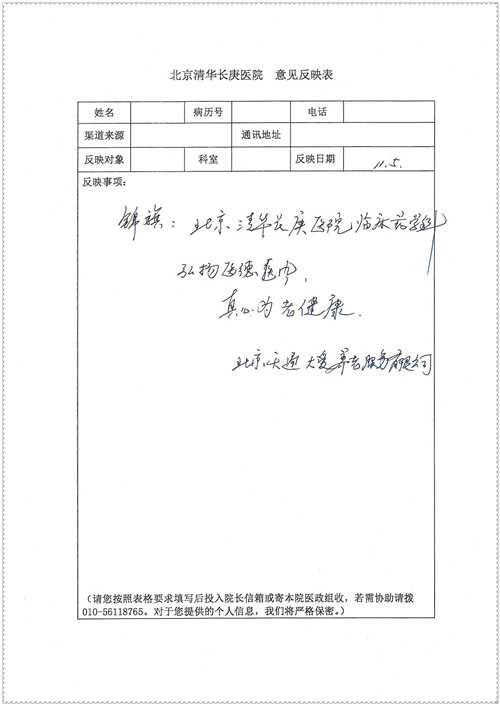 北京清华长庚医院 意见反映表
姓名 病历号 电话
渠道来源 通讯地址
反映对象 科室 反映日期 11.5.
反映事项：
锦旗：北京清华长庚医院临床药学科
弘扬医德医风，
真心为老健康.
北京天通大爱养老服务有限公司
(请您按照表格要求填写后投入院长信箱或寄本院医政组收，若需协助请拨
010-56118765。对于您提供的个人信息，我们将严格保密。)